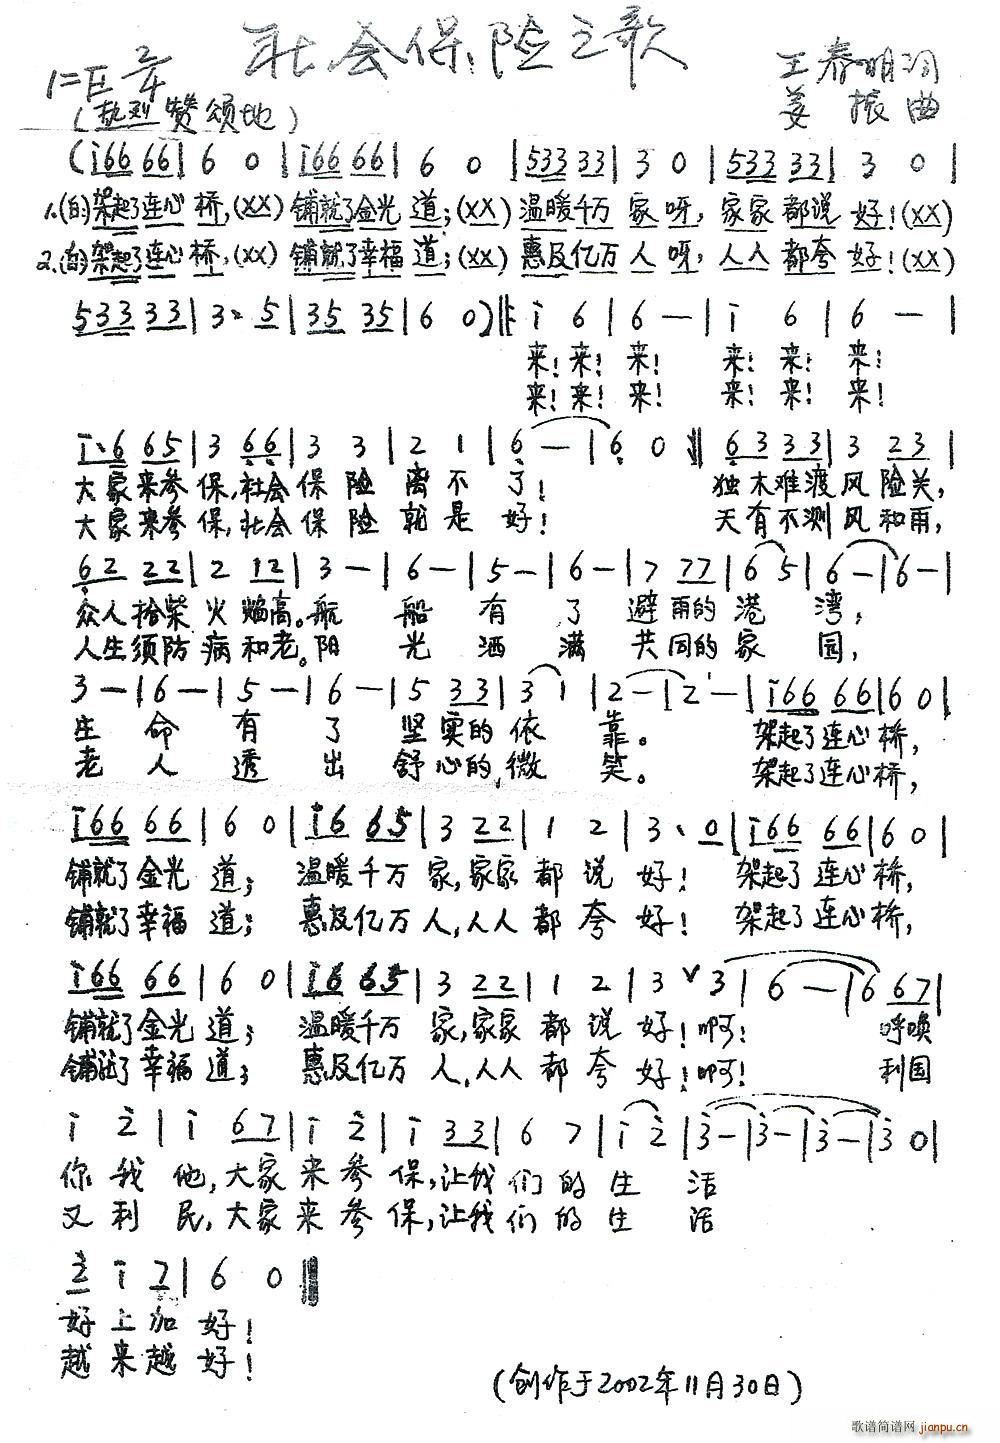 社会保险之歌
1=E 2/4
王春明词
(热烈 赞颂地)
姜振曲
(i66 66 | 6 0 | i66 66 | 6 0 | 533 33 | 3 0 | 533 33 | 3 0 |
1.(白)架起了连心桥,(XX)铺就了金光道;(XX)温暖千万家呀,家家都说好!(XX)
2.(白)架起了连心桥,(XX)铺就了幸福道;(XX)惠及亿万人呀,人人都夸好!(XX)
533 33 | 3· 5 | 35 35 | 6 0) ‖: i 6 | 6 — | i 6 | 6 — |
来!来!来! 来!来!来!
来!来!来! 来!来!来!
i·6 65 | 3 66 | 3 3 | 2 1 | 6 — | 6 0 ‖ 6333 | 3 23 |
大家来参保,社会保险离不了! 独木难渡风险关,
大家来参保,社会保险就是好! 天有不测风和雨,
62 22 | 2 12 | 3 — | 6 — | 5 — | 6 — | 7 77 | 6 5 | 6 — | 6 — |
众人拾柴火焰高。航船有了避雨的港湾,
人生须防病和老。阳光洒满共同的家园,
3 — | 6 — | 5 — | 6 — | 5 33 | 3 1 | 2 — | 2 — | i66 66 | 6 0 |
生命有了坚实的依靠。 架起了连心桥,
老人透出舒心的微笑。 架起了连心桥,
i66 66 | 6 0 | i6 65 | 3 22 | 1 2 | 3· 0 | i66 66 | 6 0 |
铺就了金光道; 温暖千万家,家家都说好! 架起了连心桥,
铺就了幸福道; 惠及亿万人,人人都夸好! 架起了连心桥,
i66 66 | 6 0 | i6 65 | 3 22 | 1 2 | 3 ∨ 3 | 6 — | 6 67 |
铺就了金光道; 温暖千万家,家家都说好!啊! 呼唤
铺就了幸福道; 惠及亿万人,人人都夸好!啊! 利国
i 2 | i 67 | i 2 | i 33 | 6 7 | i 2 | 3 — | 3 — | 3 — | 3 0 |
你我他,大家来参保,让我们的生活
又利民,大家来参保,让我们的生活
2 i 7 | 6 0 ‖
好上加好!
越来越好!
(创作于2002年11月30日)
歌谱简谱网 jianpu.cn